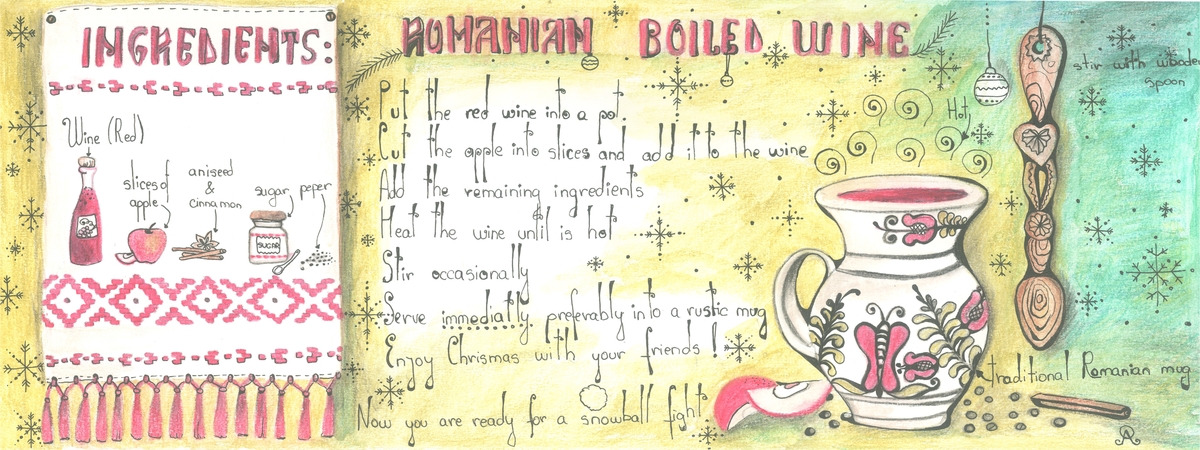 INGREDIENTS:
Wine (Red)
slices of
apple
aniseed
&
cinnamon
sugar
peper
SUGAR
ROMANIAN BOILED WINE
Put the red wine into a pot.
Cut the apple into slices and add it to the wine
Add the remaining ingredients
Heat the wine until is hot
Stir occasionally
Serve immediatly, preferably into a rustic mug
Enjoy Chrismas with your friends!
Now you are ready for a snowball fight
Hot,
stir with wooden
spoon
traditional Romanian mug